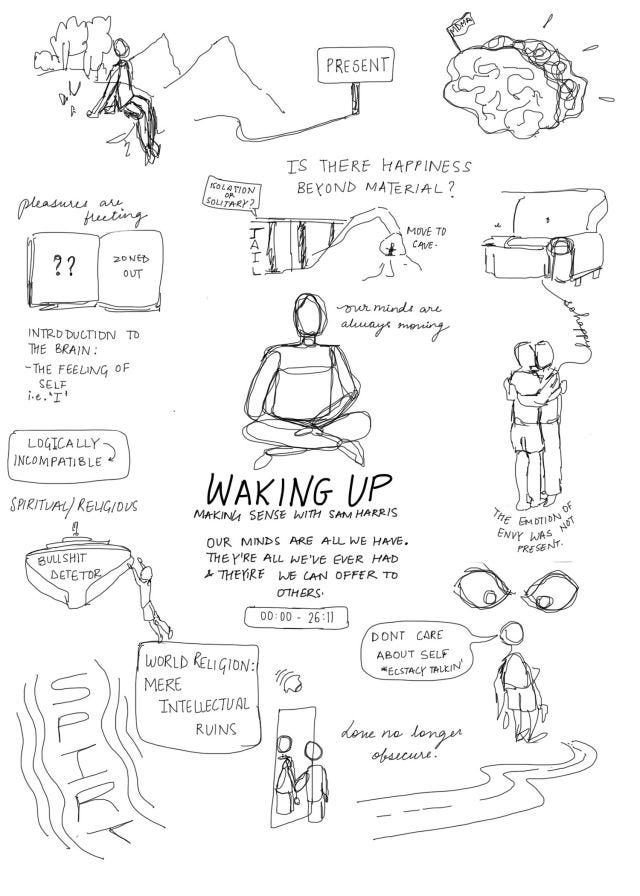 MDMA
PRESENT
IS THERE HAPPINESS
BEYOND MATERIAL?
ISOLATION
OR
SOLITARY?
JAIL
MOVE TO
CAVE.
pleasures are
fleeting
??
ZONED
OUT
our minds are
always moving
so happy
INTRODUCTION TO
THE BRAIN:
-THE FEELING OF
SELF
i.e. 'I'
LOGICALLY
INCOMPATIBLE
SPIRITUAL/RELIGIOUS
BULLSHIT
DETETOR
WAKING UP
MAKING SENSE WITH SAM HARRIS
OUR MINDS ARE ALL WE HAVE.
THEY'RE ALL WE'VE EVER HAD
& THEY'RE WE CAN OFFER TO
OTHERS.
00:00 - 26:11
THE EMOTION OF
ENVY WAS NOT
PRESENT.
DONT CARE
ABOUT SELF
"ECSTACY TALKIN'
WORLD RELIGION:
MERE
INTELLECTUAL
RUINS
SPIRIT
Love no longer
obsecure.